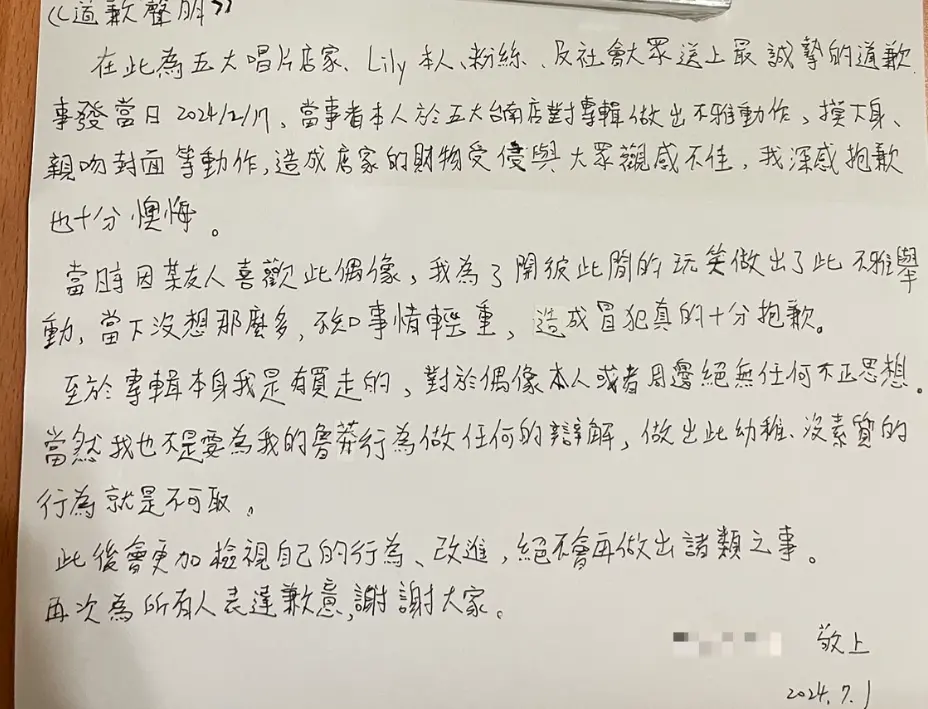 《道歉聲明》
在此為五大唱片店家、Lily本人、粉絲、及社會大眾送上最誠摯的道歉.
事發當日2024/2/17,當事者本人於五大台南店對專輯做出不雅動作,摸下身、
親吻封面等動作,造成店家的財物受侵與大眾觀感不佳,我深感抱歉
也十分懊悔。
當時因某友人喜歡此偶像,我為了開彼此間的玩笑做出了此不雅舉
動,當下沒想那麼多,不知事情輕重,造成冒犯真的十分抱歉。
至於專輯本身我是有買走的,對於偶像本人或者周邊絕無任何不正思想.
當然我也不是要為我的魯莽行為做任何的辯解,做出此幼稚、沒素質的
行為就是不可取。
此後會更加檢視自己的行為、改進,絕不會再做出諸類之事。
再次為所有人表達歉意,謝謝大家。
敬上
2024.7.1